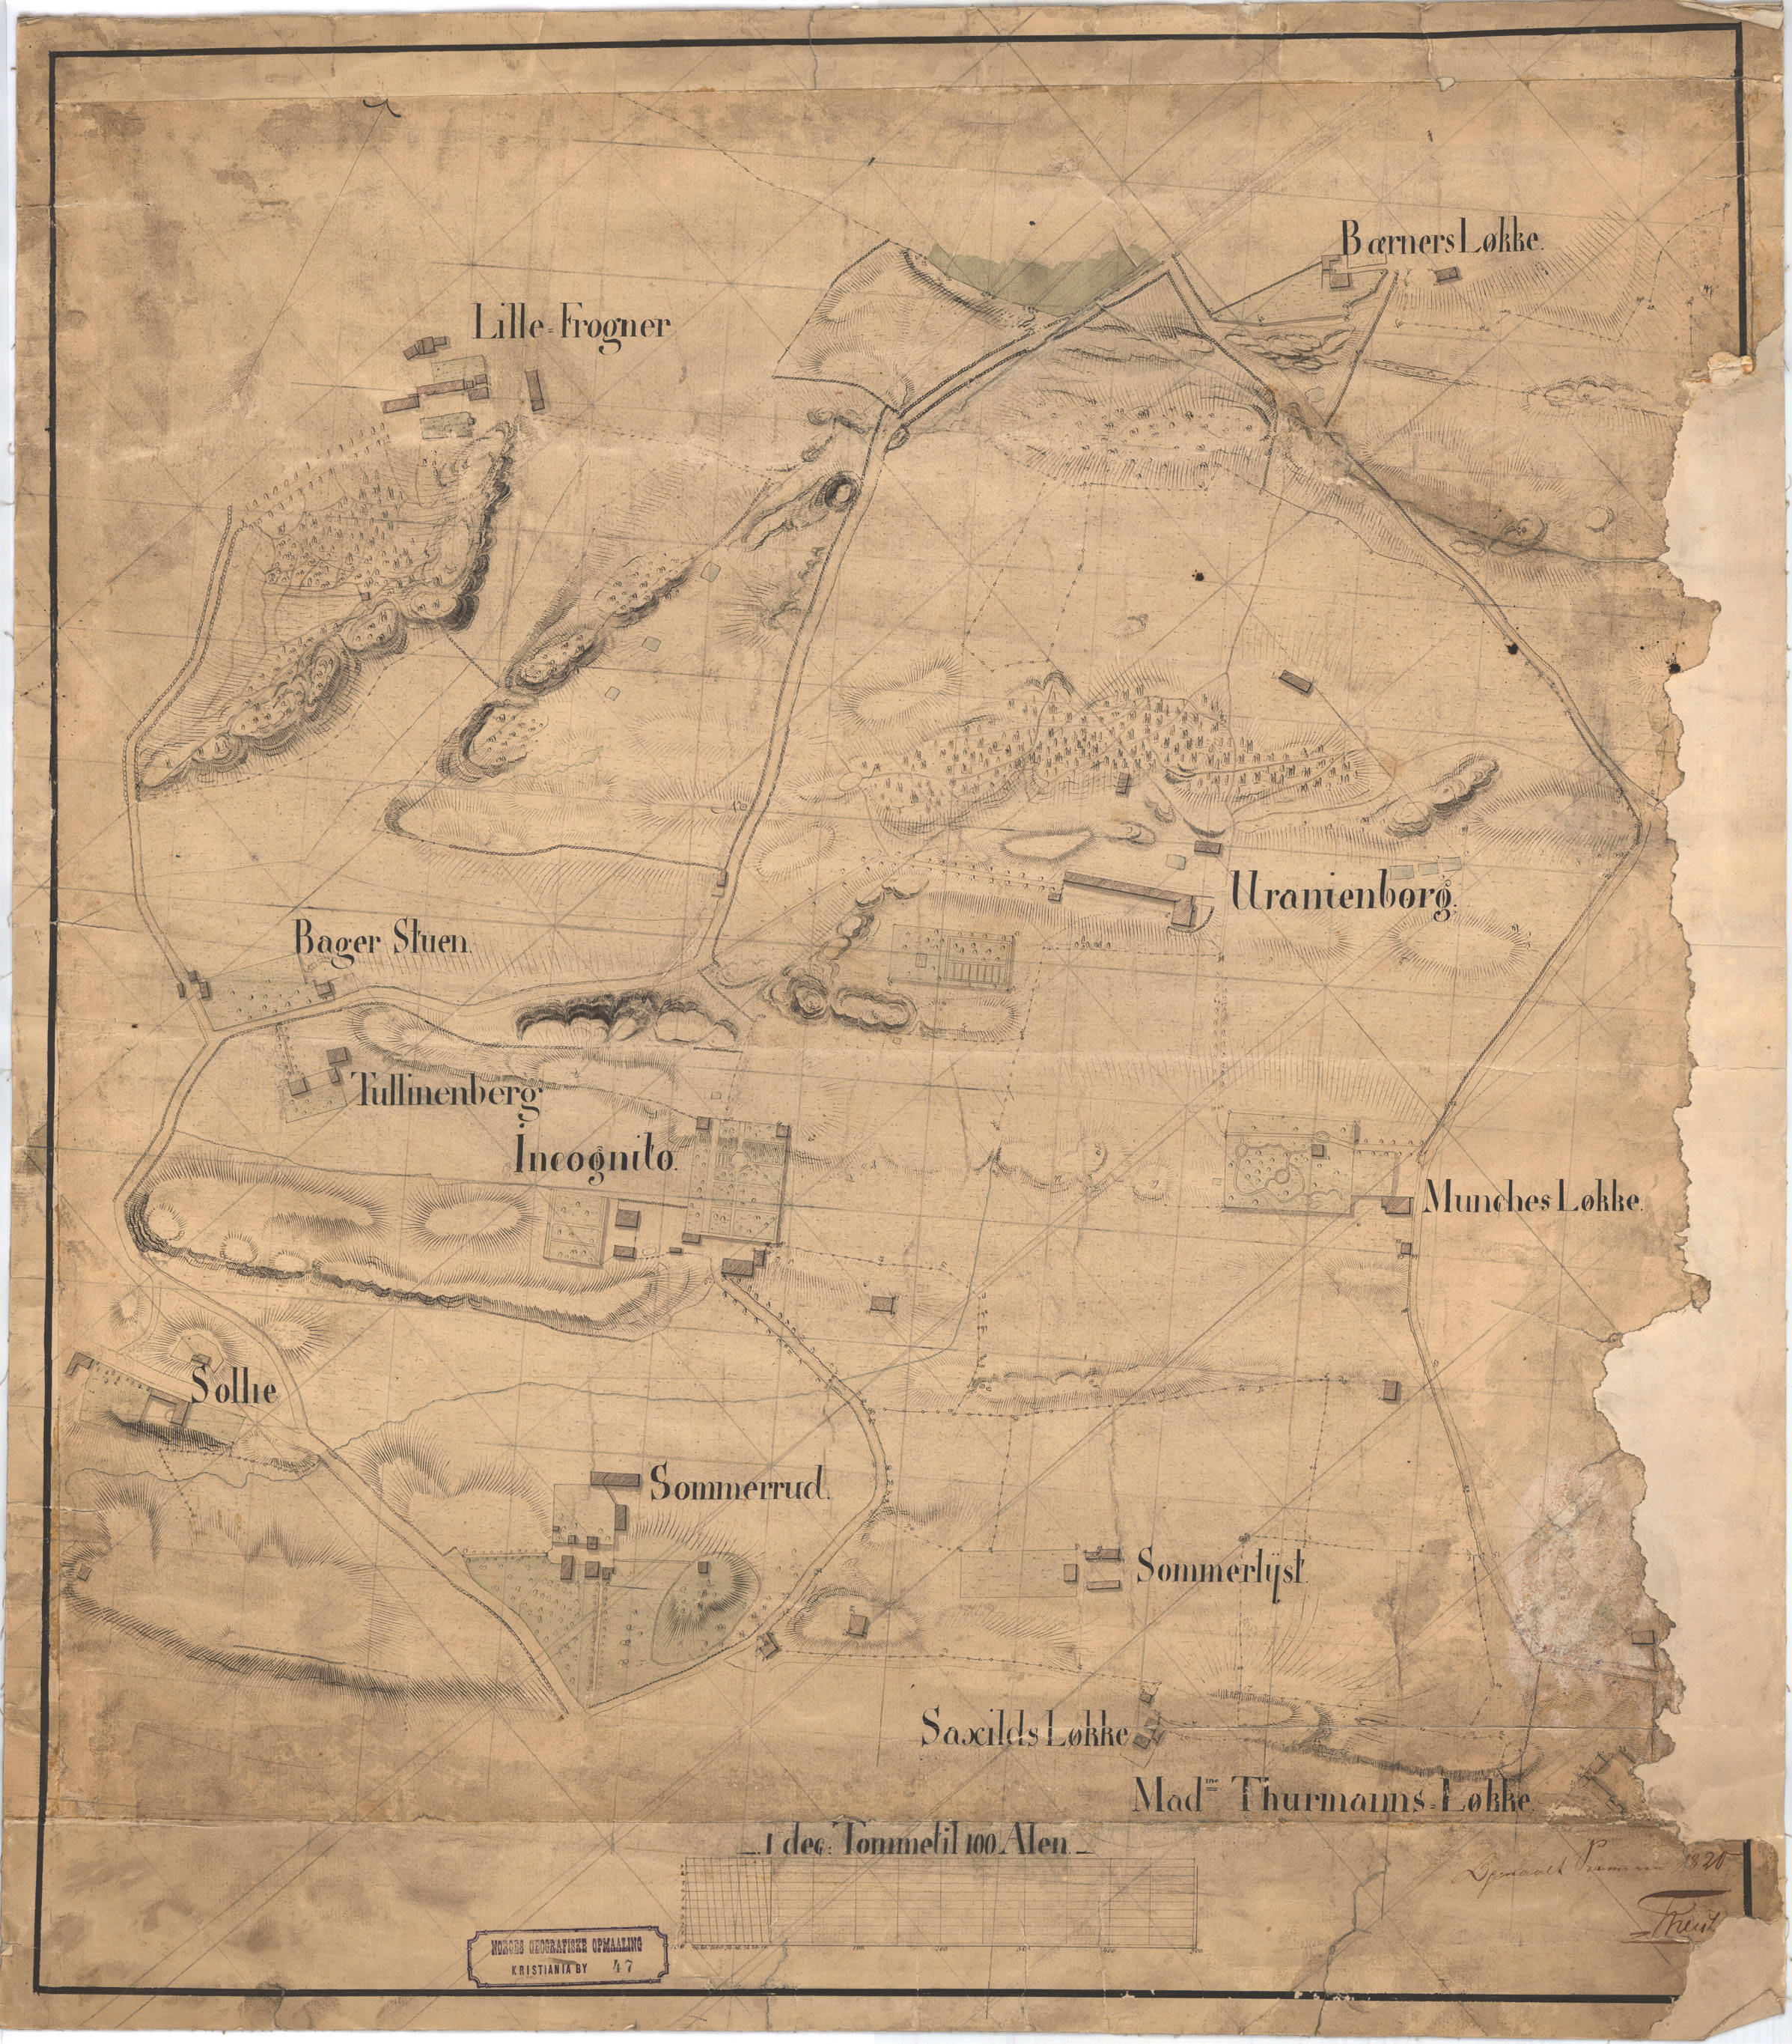 Bærners Løkke.
Lille-Frogner
Uranienborg.
Bager Stuen.
Tullinenberg.
Incognito.
Munches Løkke.
Sollie
Sommerrud.
Sommerlyst.
Saxilds Løkke
Mad<sup>me</sup> Thurmanns-Løkke.
1 dec: Tomme til 100 Alen.
Opmaalt 1820
100 200 300 400 500
NORGES GEOGRAFISKE OPMAALING
KRISTIANIA BY 47